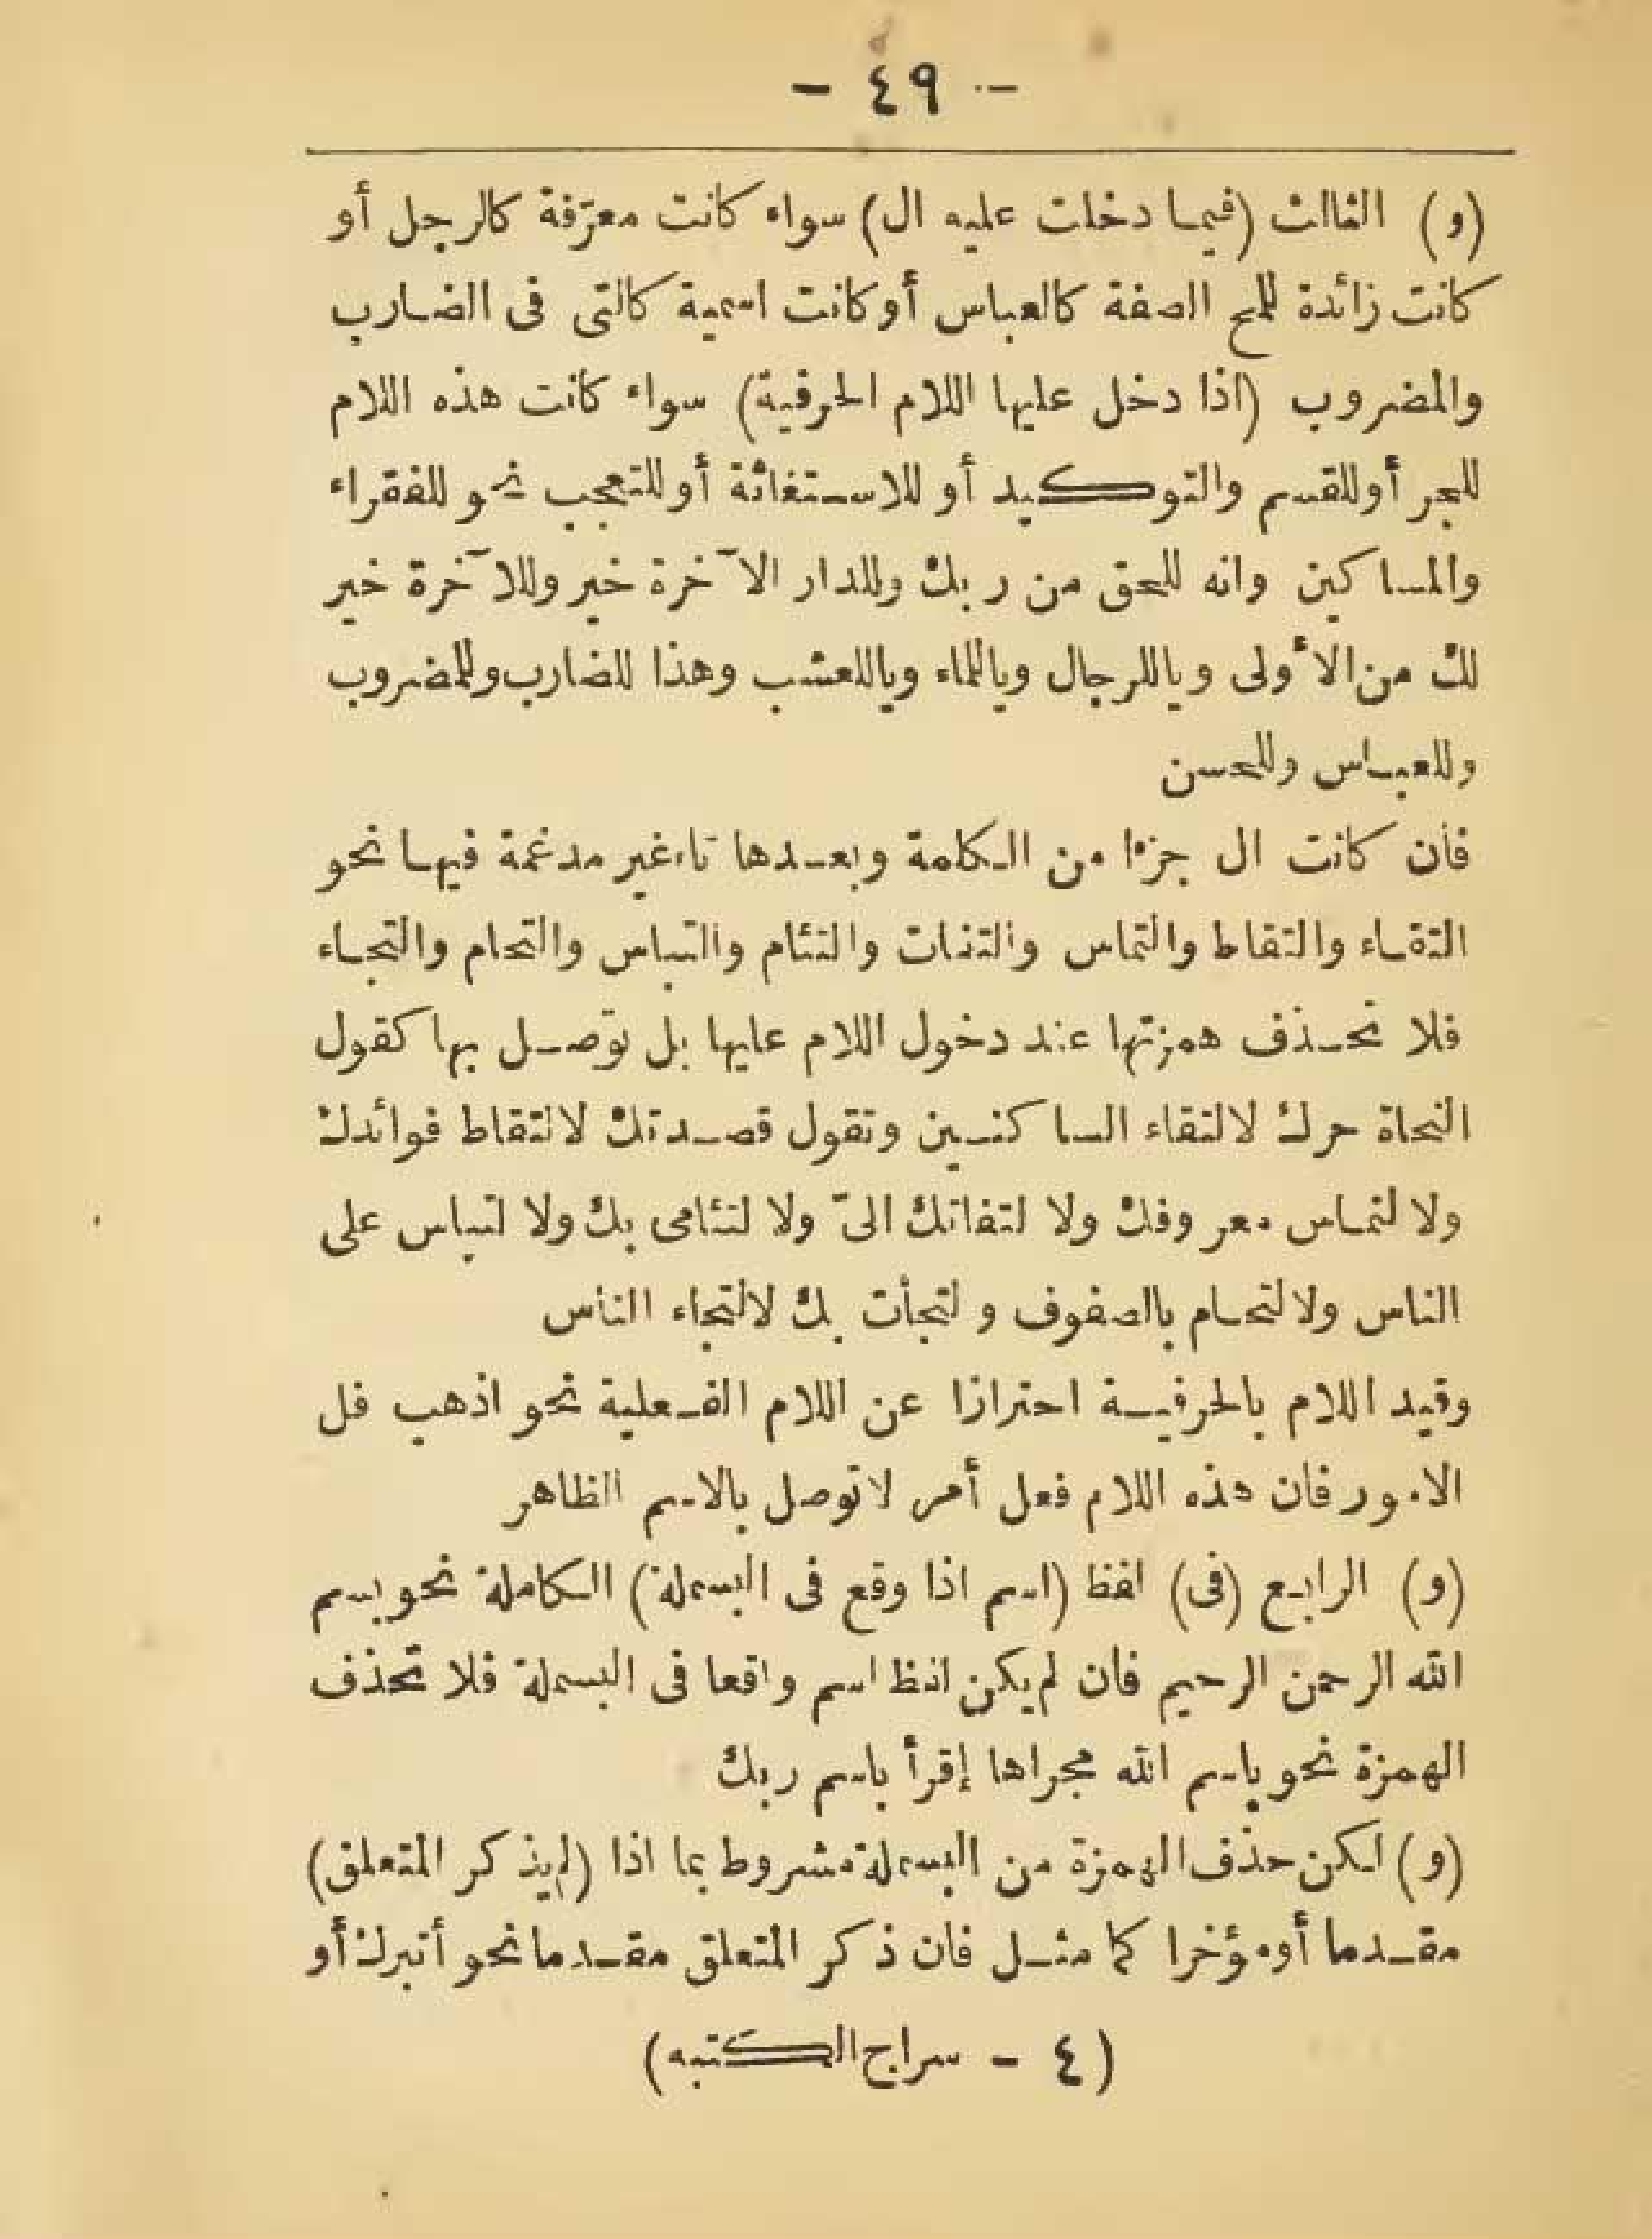 - ٤٩ -
(و) الثالث (فيما دخلت عليه ال) سواء كانت معرّفة كالرجل أو
كانت زائدة للمح الصفة كالعباس أو كانت اسمية كالتى فى الضارب
والمضروب (اذا دخل عليها اللام الحرفية) سواء كانت هذه اللام
للجر أو للقسم والتوكيد أو للاستغاثة أو للتعجب نحو للفقراء
والمساكين وانه للحق من ربك وللدار الآخرة خير وللآخرة خير
لك من الأولى وياللرجال وياللماء وياللعشب وهذا للضارب وللمضروب
وللعباس وللحسن
فأن كانت ال جزءا من الكلمة وبعدها تاء غير مدغمة فيها نحو
التقاء والتقاط والتماس والتفات والتئام والتباس والتحام والتجاء
فلا تحذف همزتها عند دخول اللام عليها بل توصل بها كقول
النحاة حرك لالتقاء الساكنين وتقول قصدتك لالتقاط فوائدك
ولالتماس معروفك ولالتفاتك الىّ ولالتئامى بك ولالتباس على
الناس ولالتحام بالصفوف والتجأت بك لالتجاء الناس
وقيد اللام بالحرفية احترازا عن اللام الفعلية نحو اذهب فل
الامور فان هذه اللام فعل أمر لا توصل بالاسم الظاهر
(و) الرابع (فى) لفظ (اسم اذا وقع فى البسملة) الكاملة نحو بسم
الله الرحمن الرحيم فان لم يكن لفظ اسم واقعا فى البسملة فلا تحذف
الهمزة نحو باسم الله مجراها إقرأ باسم ربك
(و) لكن حذف الهمزة من البسملة مشروط بما اذا (لم يذكر المتعلق)
مقدما أو مؤخرا كما مثل فان ذكر المتعلق مقدما نحو أتبرك أو
(٤ - سراج الكتبه)